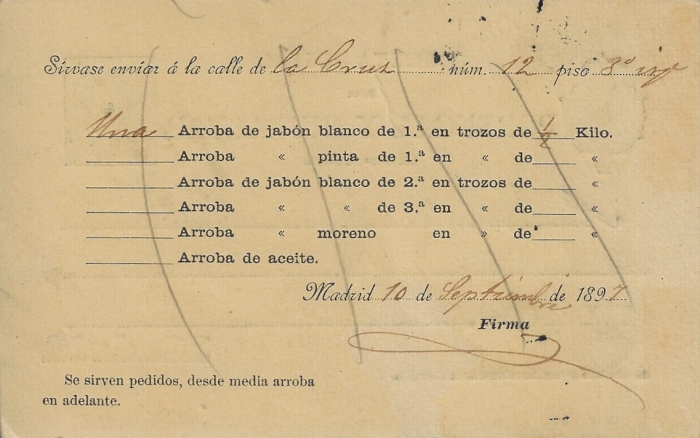 Sírvase enviar á la calle de la Cruz núm. 12 piso 3º izq
Una Arroba de jabón blanco de 1.ª en trozos de ½ Kilo.
Arroba « pinta de 1.ª en « de «
Arroba de jabón blanco de 2.ª en trozos de «
Arroba « « de 3.ª en « de «
Arroba « moreno en » de «
Arroba de aceite.
Madrid 10 de Septiembre de 1897
Firma
Se sirven pedidos, desde media arroba
en adelante.